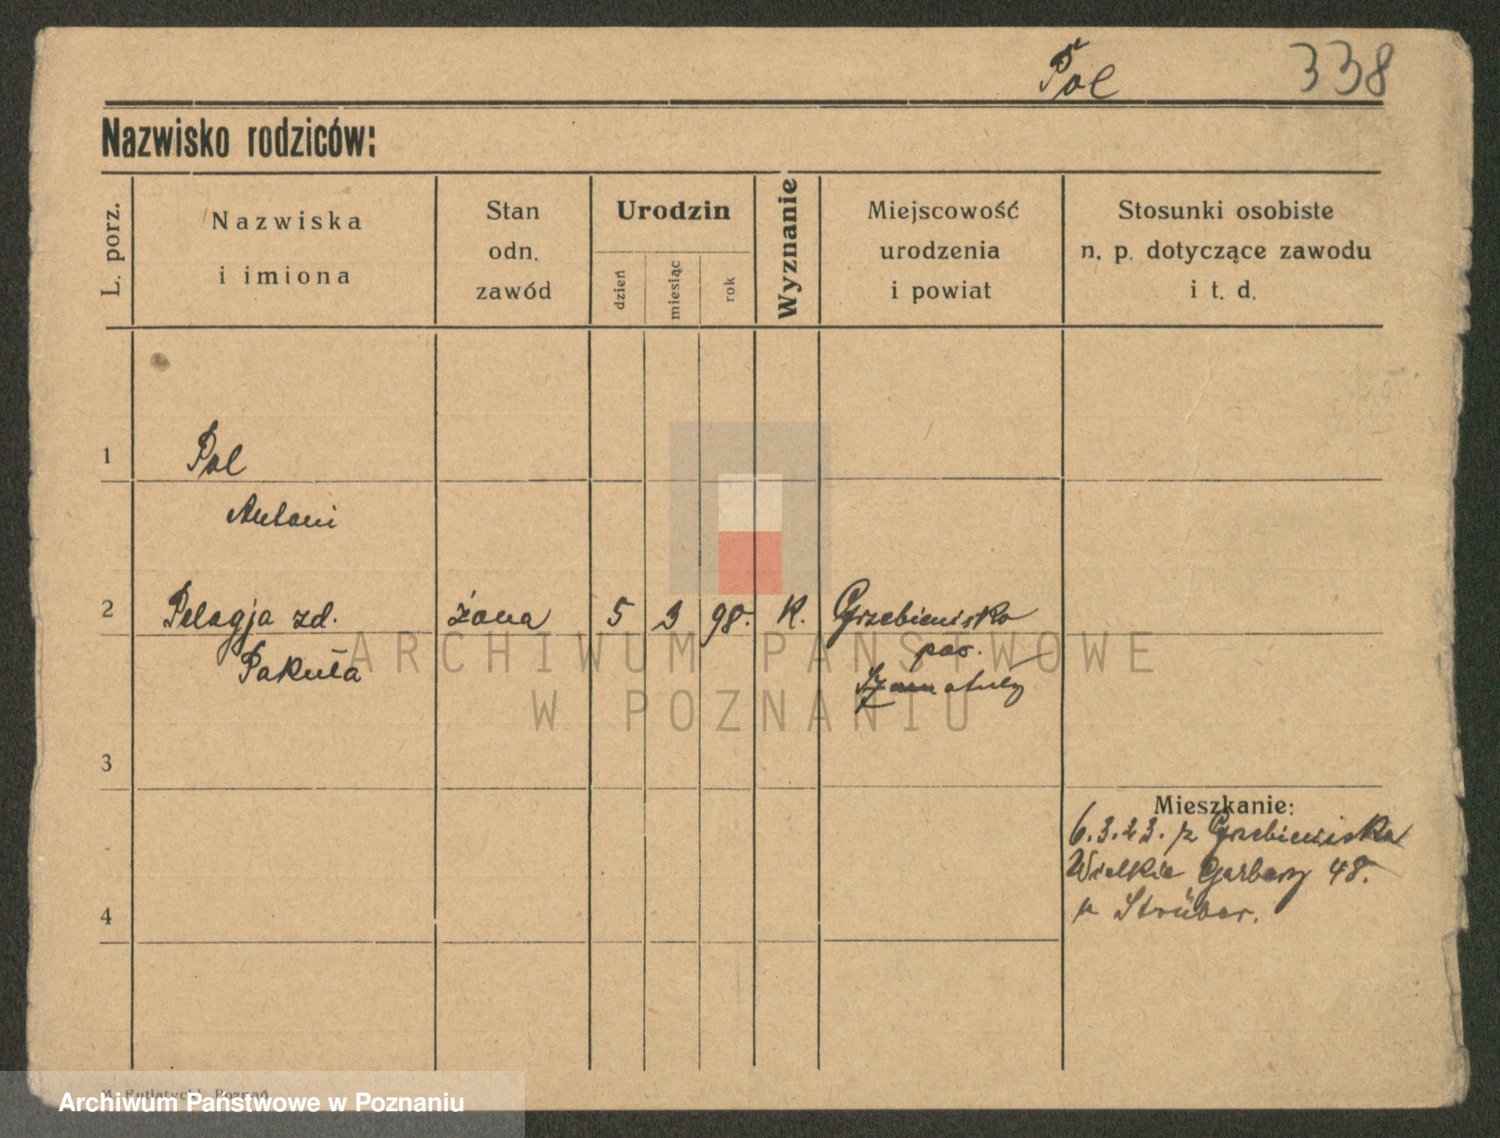 Pol 338
Nazwisko rodziców:
L. porz.
Nazwiska
i imiona
Stan
odn.
zawód
Urodzin
dzień
miesiąc
rok
Wyznanie
Miejscowość
urodzenia
i powiat
Stosunki osobiste
n. p. dotyczące zawodu
i t. d.
1 Pol
Antoni
2 Pelagja zd. żona 5 3 98. K. Grzebienisko
Pakuła pow.
Szamotuły
3
Mieszkanie:
6.3.23. z Grzebieniska
Wielkie Garbary 48.
4 u Strüber.
ARCHIWUM PAŃSTWOWE
W POZNANIU
Poznań
Archiwum Państwowe w Poznaniu